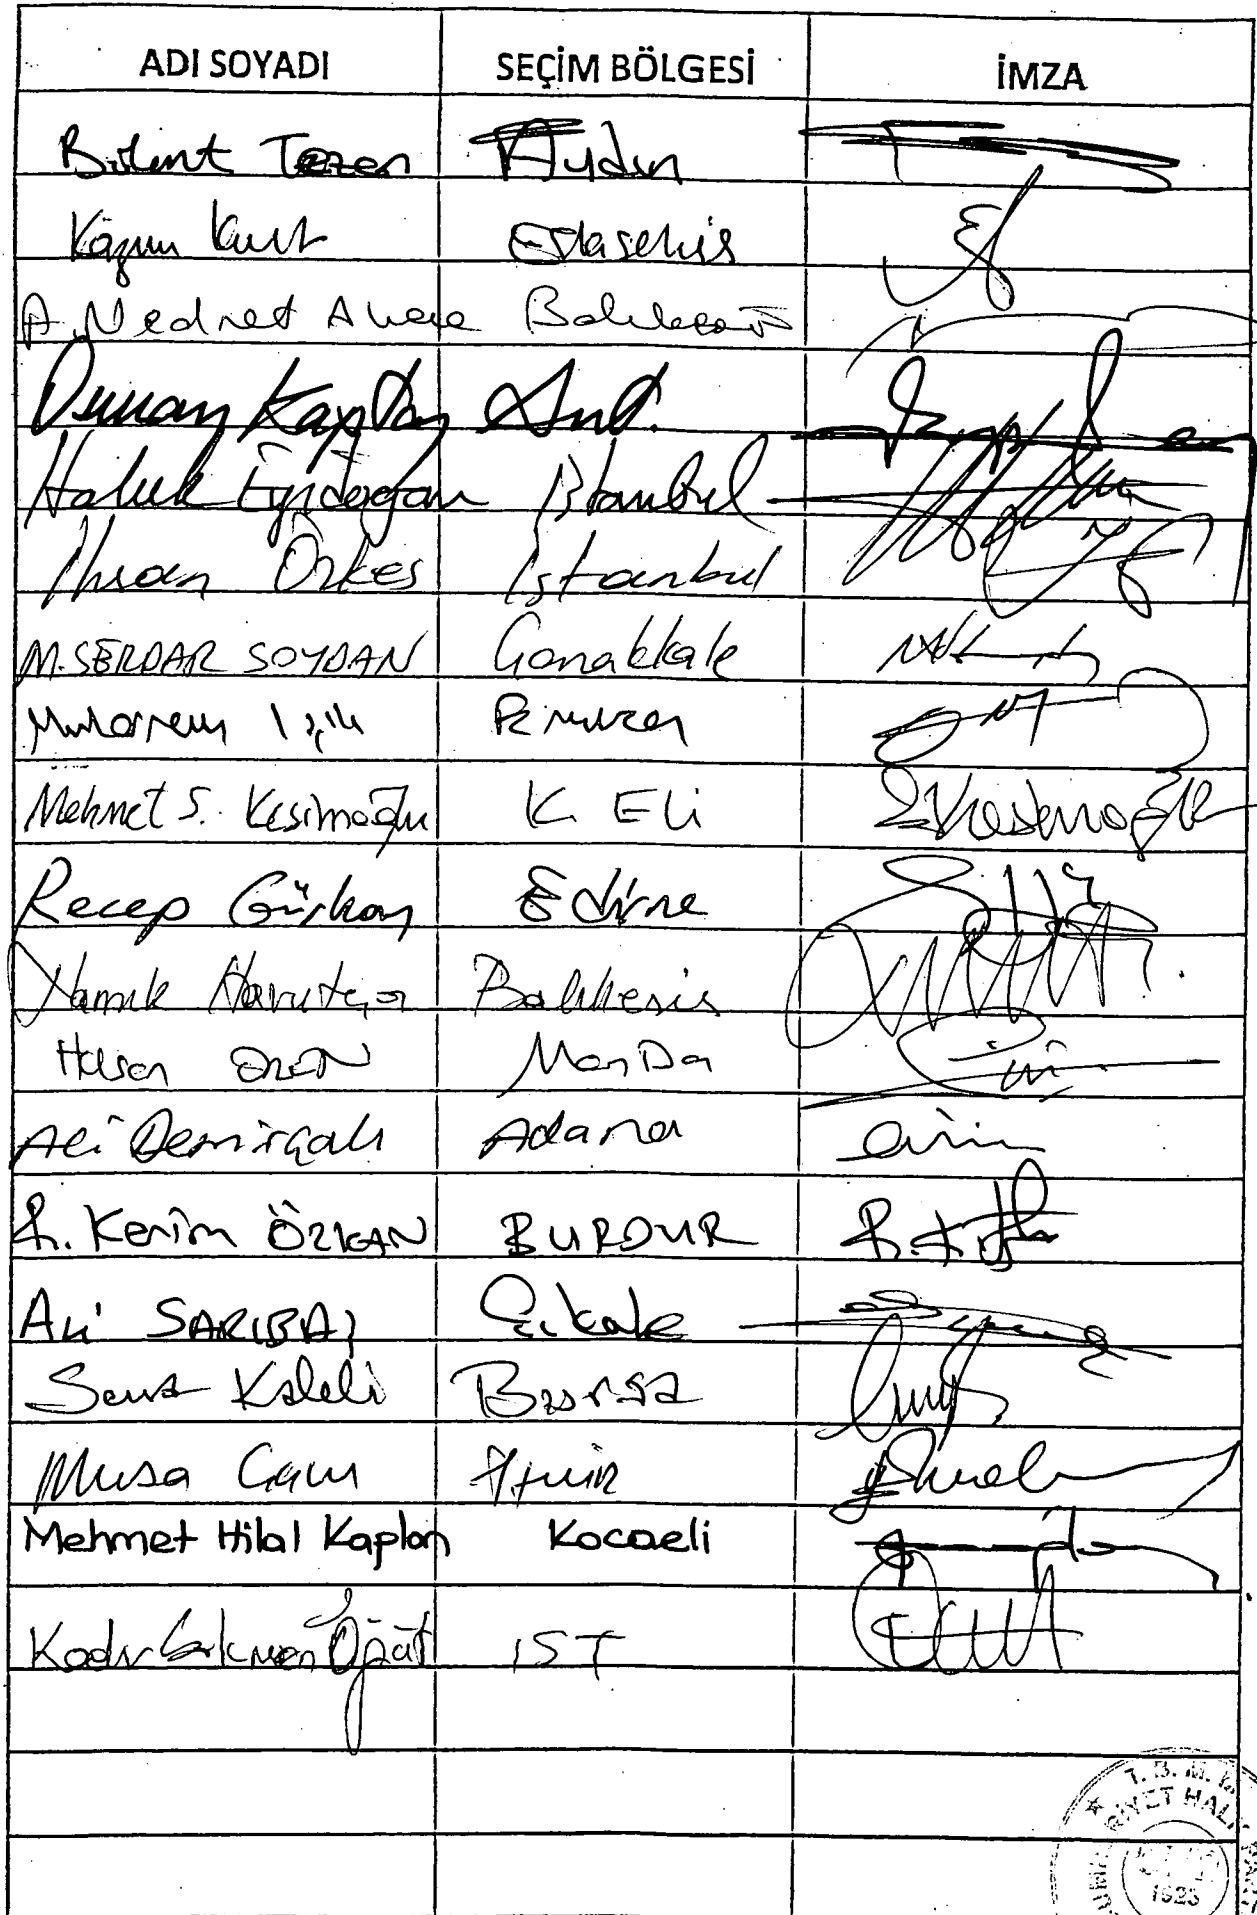 ADI SOYADI SEÇİM BÖLGESİ İMZA
Bülent Tezcan Aydın
Kazım Kurt Eskişehir
A. Nedret Akova Balıkesir
Osman Kaptan Ant.
Haluk Eyidoğan İstanbul
İhsan Özkes İstanbul
M. SERDAR SOYDAN Çanakkale
Muharrem Işık Erzincan
Mehmet S. Kesimoğlu K. ELi
Recep Gürkan Edirne
Namık Havutça Balıkesir
Hasan ÖREN Manisa
Ali Demirçalı Adana
R. Kerim ÖZKAN BURDUR
Ali SARIBAŞ Ç.kale
Sena Kaleli Bursa
Musa Çam İzmir
Mehmet Hilal Kaplan Kocaeli
Kadir Gökmen Öğüt İST
T. B. M. M.
1923